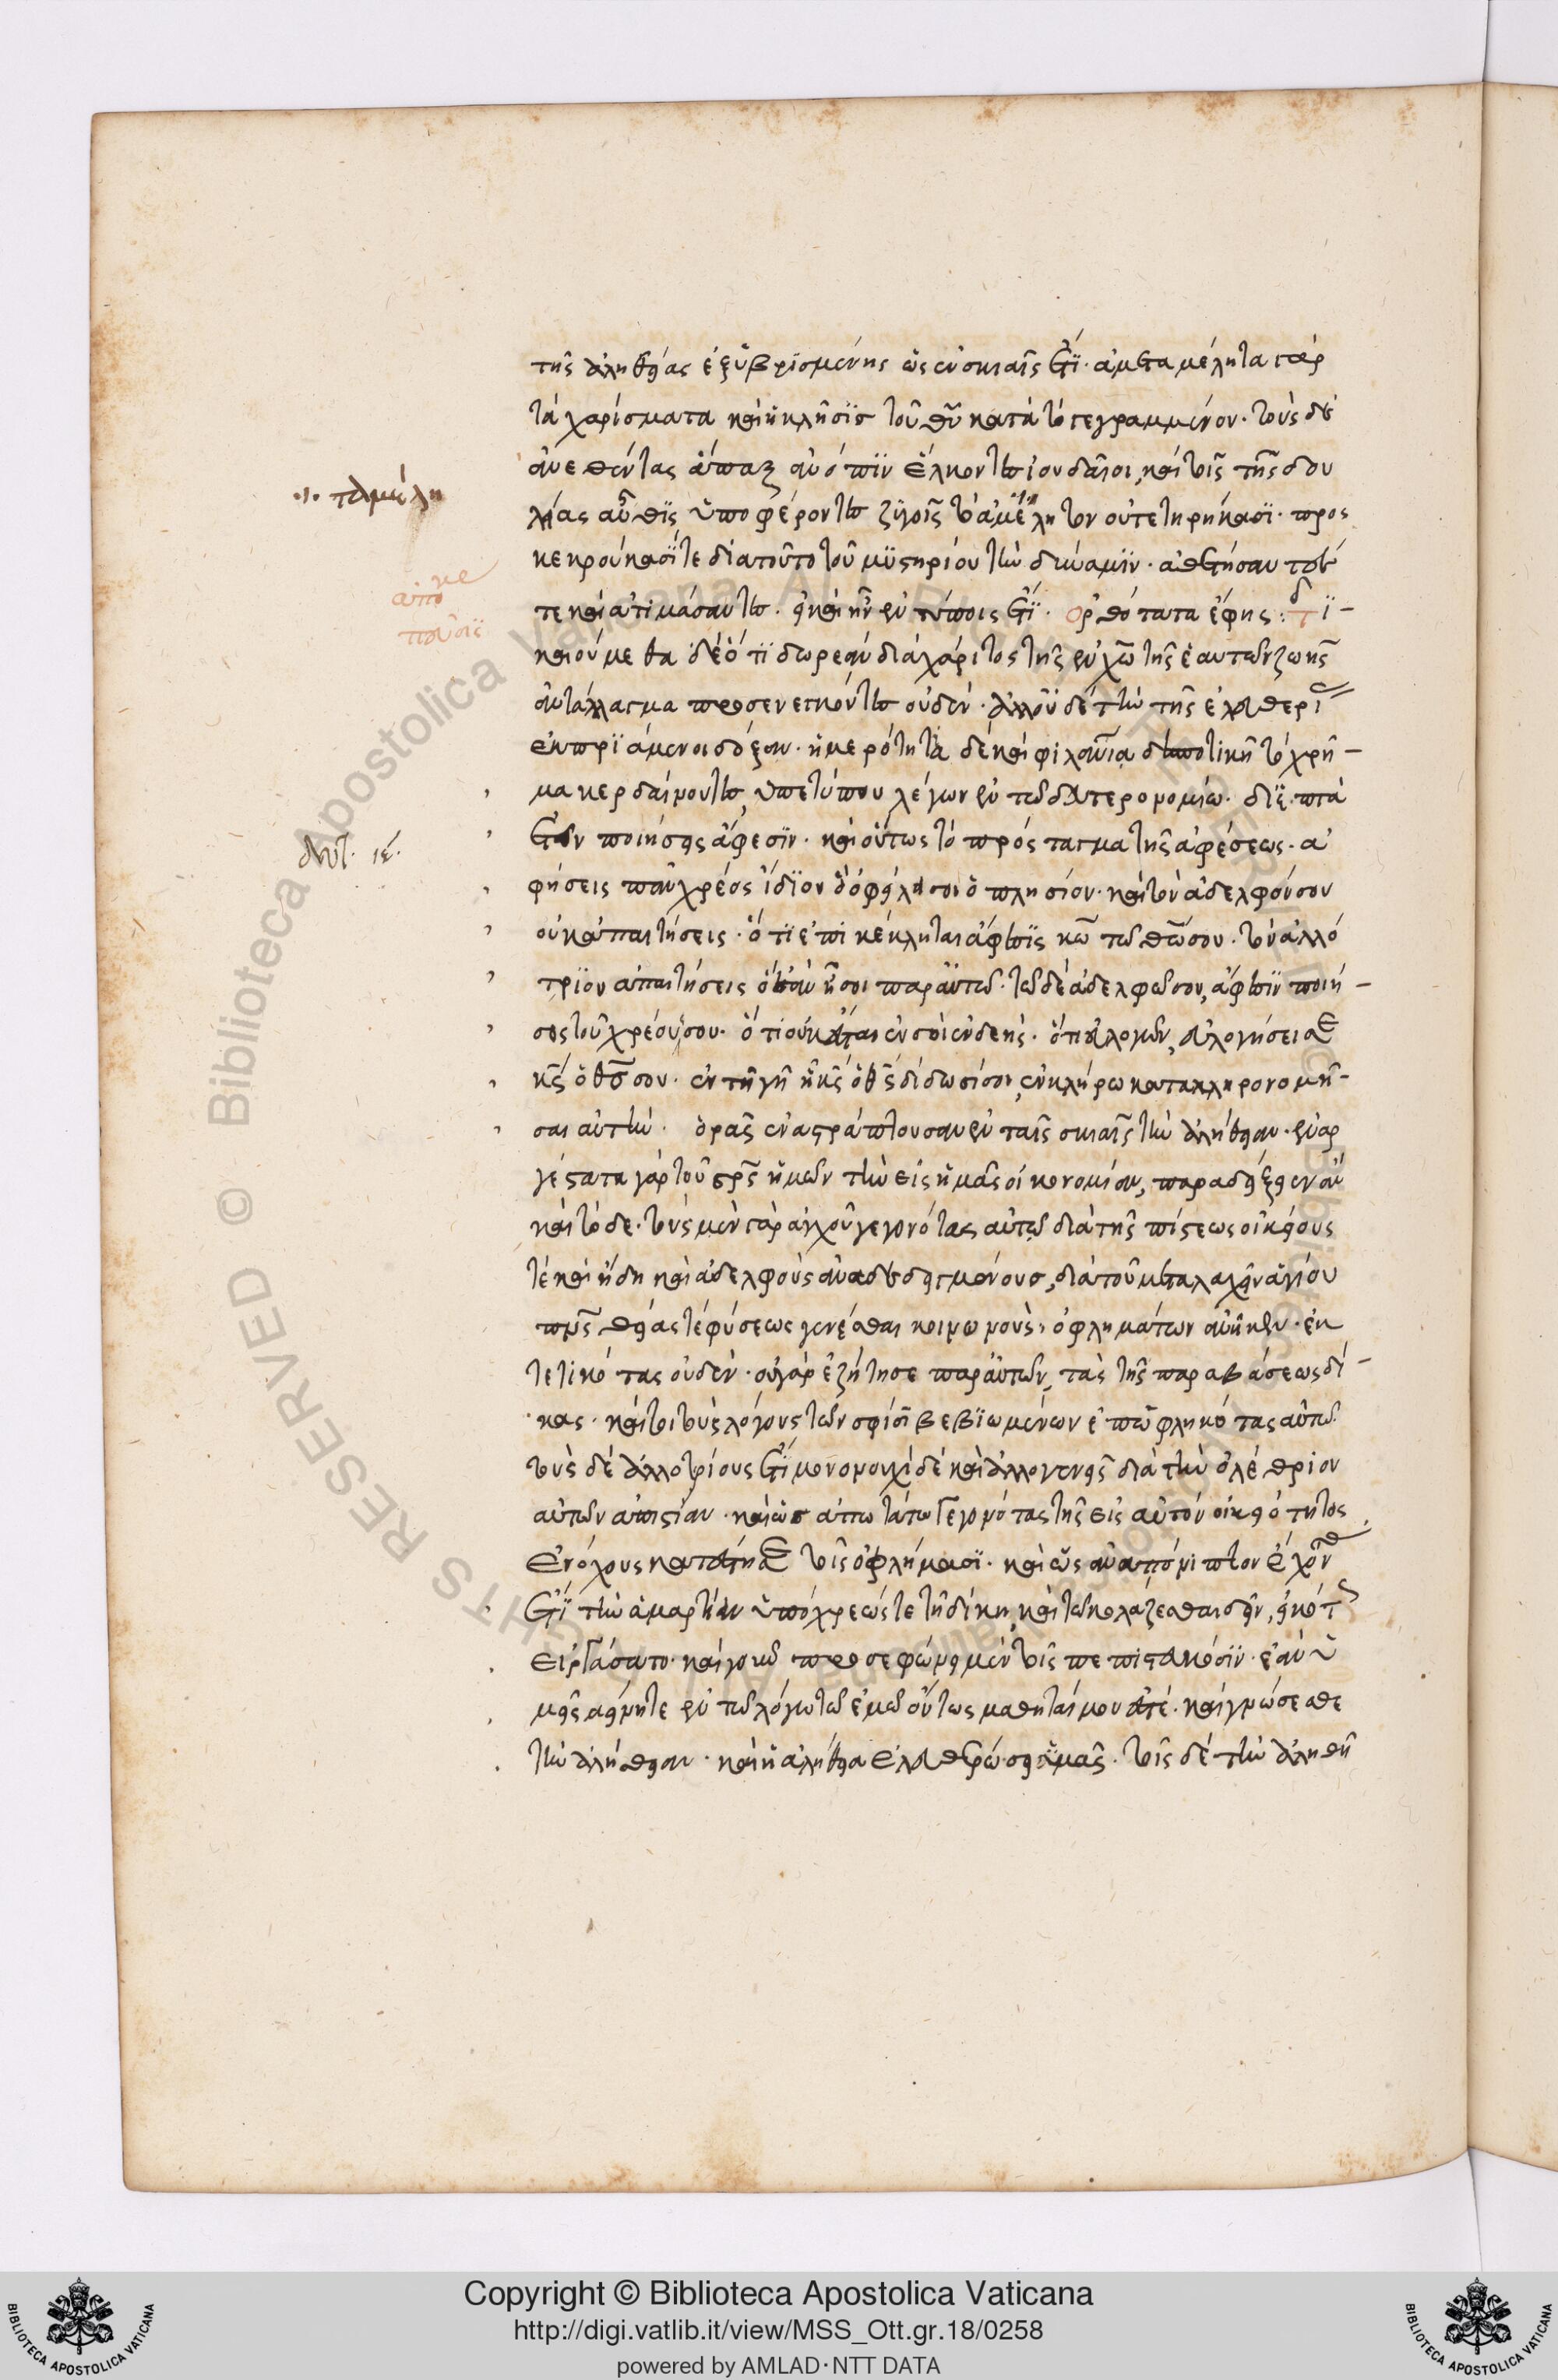 τῆς ἀληθείας ἐξυβρισμένης ὡς ἐν σκιαῖς ἔτι· ἀμεταμέλητα γὰρ
τὰ χαρίσματα καὶ ἡ κλῆσις τοῦ θῦ κατὰ τὸ γεγραμμένον· τοὺς δὲ
ἀνεθέντας ἅπαξ ἀνόπιν εἷλκον ἰουδαῖοι, καὶ τοῖς τῆς δου
λείας αὖθις ὑποφέροντες ζυγοῖς τὸ ἀμέλητον οὐ τετηρήκασι· προσ
κεκρούκασί τε διὰ τοῦτο τοῦ μυστηρίου τὴν δύναμιν· ἀθετήσαντες
τε καὶ ἀτιμάσαντες· εἰ καὶ ἦν ἐν τύποις ἔτι· ὀρθότατα ἔφης: δι-
καιούμεθα δὲ ὅτι δωρεὰν διὰ χάριτος τῆς ἐν χῶ τῆς ἑαυτῶν ζωῆς
ἀντάλλαγμα προσενεγκόντες οὐδέν· ἀλλ' οὐδὲ τὴν τῆς ἐλευθερίας
ἐκπριάμενοι δόξαν· ἡμερότητι δὲ καὶ φιλανία δεσποτικῆ τὸ χρῆ-
μα κερδαίνοντες, ὑπετύπου λέγων ἐν τῶ δευτερονομίω· δι' ἑπτὰ
ἐτῶν ποιήσεις ἄφεσιν· καὶ οὕτως τὸ πρόσταγμα τῆς ἀφέσεως· ἀ
φήσεις πᾶν χρέος ἴδιον ὃ ὀφείλει σοι ὁ πλησίον· καὶ τὸν ἀδελφόν σου
οὐκ ἀπαιτήσεις· ὅτι ἐπικέκληται ἄφεσις κῶ τῶ θῶ σου· τὸν ἀλλό
τριον ἀπαιτήσεις ὃ ἐὰν ἦ σοι παρ' αὐτῶ· τῶ δὲ ἀδελφῶ σου, ἄφεσιν ποιή-
σεις τοῦ χρέους σου· ὅτι οὐκ ἔσται ἐν σοὶ ἐνδεής· ὅτι εὐλογῶν, εὐλογήσει σε
κς ὁ θς σου· ἐν τῆ γῆ ἧ κς ὁ θς δίδωσί σοι, ἐν κλήρω κατακληρονομῆ-
σαι αὐτήν· ὁρᾶς ἐναστράπτουσαν ἐν ταῖς σκιαῖς τὴν ἀλήθειαν· ἐναρ
γέστατα γὰρ τοῦ σρς ἡμῶν τὴν εἰς ἡμᾶς οἰκονομίαν, παραδείξειεν ἂν
καὶ τόδε· τοὺς μὲν γὰρ ἀγχοῦ γεγονότας αὐτῶ διὰ τῆς πίστεως οἰκείους
τὲ καὶ ἤδη καὶ ἀδελφοὺς ἀναδεδειγμένους, διὰ τοῦ μεταλαχεῖν ἁγίου
πνς θείας τὲ φύσεως γενέσθαι κοινωνοὺς, ὀφλημάτων ἀνῆκεν· ἐκ
τετικότας οὐδέν· οὐ γὰρ ἐζήτησε παρ' αὐτῶν, τὰς τῆς παραβάσεως δί-
κας· καί τοι τοὺς λόγους τῶν σφίσι βεβιωμένων ἐπωφληκότας αὐτῶ
τοὺς δὲ ἀλλοτρίους ἔτι μονονουχὶ δὲ καὶ ἀλλογενεῖς διὰ τὴν ὀλέθριον
αὐτῶν ἀπιστίαν· καὶ ὡς ἀπωτάτω γεγονότας τῆς εἰς αὐτὸν οἰκειότητος
ἐνόχους κατατήσε τοῖς ὀφλήμασι· καὶ ὡς ἀναπόνιπτον ἔχοντας
ἔτι τὴν ἁμαρτίαν ὑπόχρεώς τε τῆ δίκη, καὶ τῶ κολάζεσθαι δεῖν, εἰκότως
εἰργάσατο· καὶ γοῦν προσεφώνει μὲν τοῖς πεπιστευκόσιν· ἐὰν ὑ
μεῖς μείνητε ἐν τῶ λόγω τῶ ἐμῶ ὄντως μαθηταί μου ἐστέ· καὶ γνώσεσθε
τὴν ἀλήθειαν· καὶ ἡ ἀλήθεια ἐλευθερώσει ὑμᾶς· τοῖς δὲ τὴν ἀληθῆ
·/· ταμέλη
ἀπὸ κε
δευτ. ιε.
Copyright © Biblioteca Apostolica Vaticana
http://digi.vatlib.it/view/MSS_Ott.gr.18/0258
powered by AMLAD·NTT DATA
BIBLIOTECA APOSTOLICA VATICANA
BIBLIOTECA APOSTOLICA VATICANA